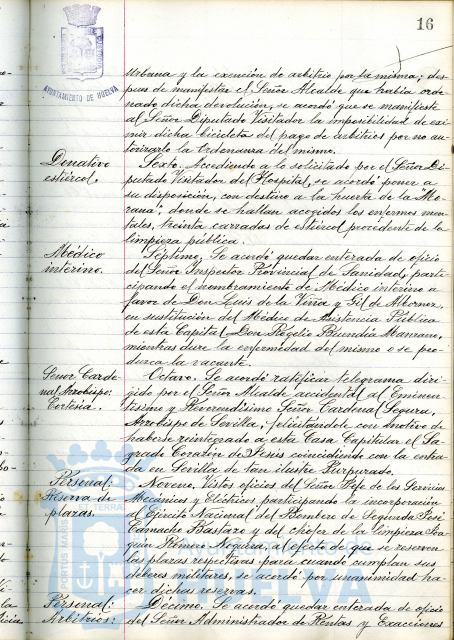 16
AYUNTAMIENTO DE HUELVA
Urbana y la exención de arbitrio por la misma; des-
pues de manifestar el Señor Alcalde que habia orde-
nado dicha devolución, se acordó que se manifieste
al Señor Diputado Visitador la imposibilidad de exi-
mir dicha bicicleta del pago de arbitrios por no au-
torizarlo la Ordenanza del mismo.
Donativo
estiércol.
Sexto. Accediendo a lo solicitado por el Señor Di-
putado Visitador del Hospital, se acordó poner a
su disposición, con destino a la huerta de "la Mo-
rana", donde se hallan acogidos los enfermos men-
tales, treinta carradas de estiércol procedente de la
limpieza pública.
Médico
interino.
Séptimo. Se acordó quedar enterada de oficio
del Señor Inspector Provincial de Sanidad, parti-
cipando el nombramiento de Médico interino a
favor de Don Luis de la Viña y Gil de Albornoz,
en sustitución del Médico de Asistencia Pública
de esta Capital Don Rogelio Buendía Manzano,
mientras dure la enfermedad del mismo o se pro-
duzca la vacante.
Señor Carde-
nal Arzobispo:
Cortesía.
Octavo. Se acordó ratificar telegrama diri-
gido por el Señor Alcalde accidental al Eminen-
tísimo y Reverendísimo Señor Cardenal Segura,
Arzobispo de Sevilla, felicitándole con motivo de
haberse reintegrado a esta Casa Capitular el Sa-
grado Corazón de Jesús coincidiendo con la entra-
da en Sevilla de tan ilustre Purpurado.
Personal:
Reserva de
plazas.
Noveno. Vistos oficios del Señor Jefe de los Servicios
Mecánicos y Eléctricos participando la incorporación
al Ejército Nacional del Bombero de Segunda José
Camacho Basfazo y del chófer de la limpieza Joa-
quín Romero Noguera, al efecto de que se reserven
las plazas respectivas para cuando cumplan sus
deberes militares, se acordó por unanimidad ha-
cer dichas reservas.
Personal:
Arbitrios:
Décimo. Se acordó quedar enterada de oficio
del Señor Administrador de Rentas y Exacciones